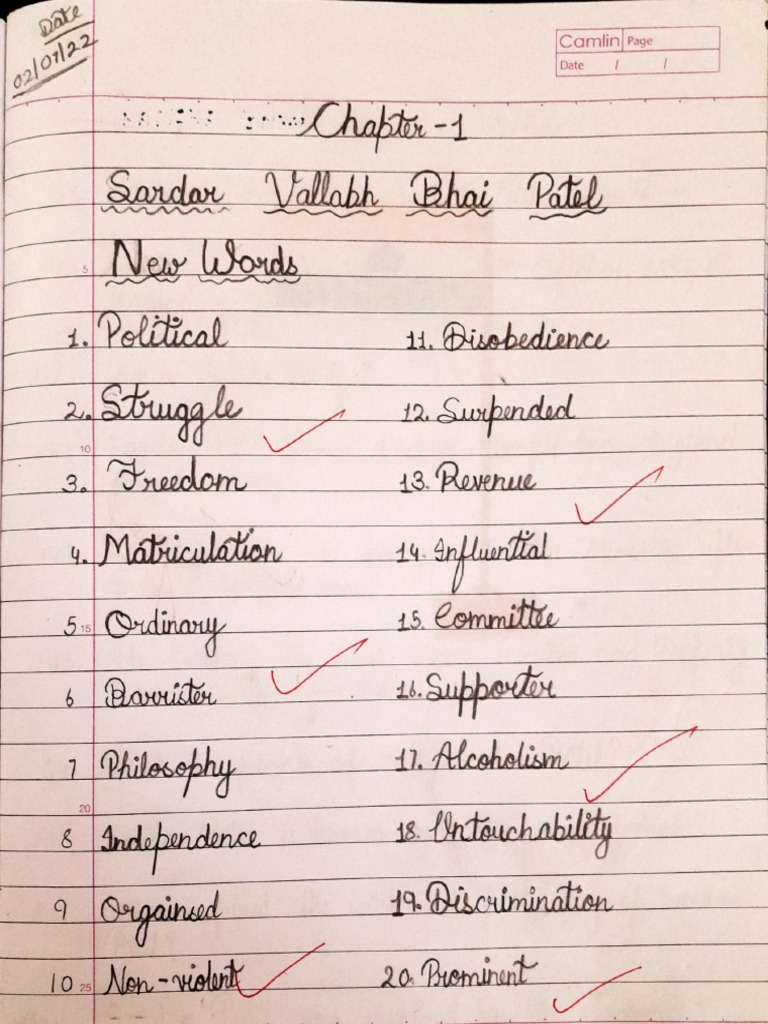 Date
02/07/22
Camlin Page
Date / /
Chapter-1
Sardar Vallabh Bhai Patel
5
New Words
1. Political
11. Disobedience
2. Struggle
12. Surpended
10
3. Freedom
13. Revenue
4. Matriculation
14. Influential
5 15 Ordinary
15. Committee
6 Barrister
16. Supporter
7 Philosophy
17. Alcoholism
20
8 Independence
18. Untouchability
9 Orgainsed
19. Discrimination
10 25 Non-violent
20. Prominent